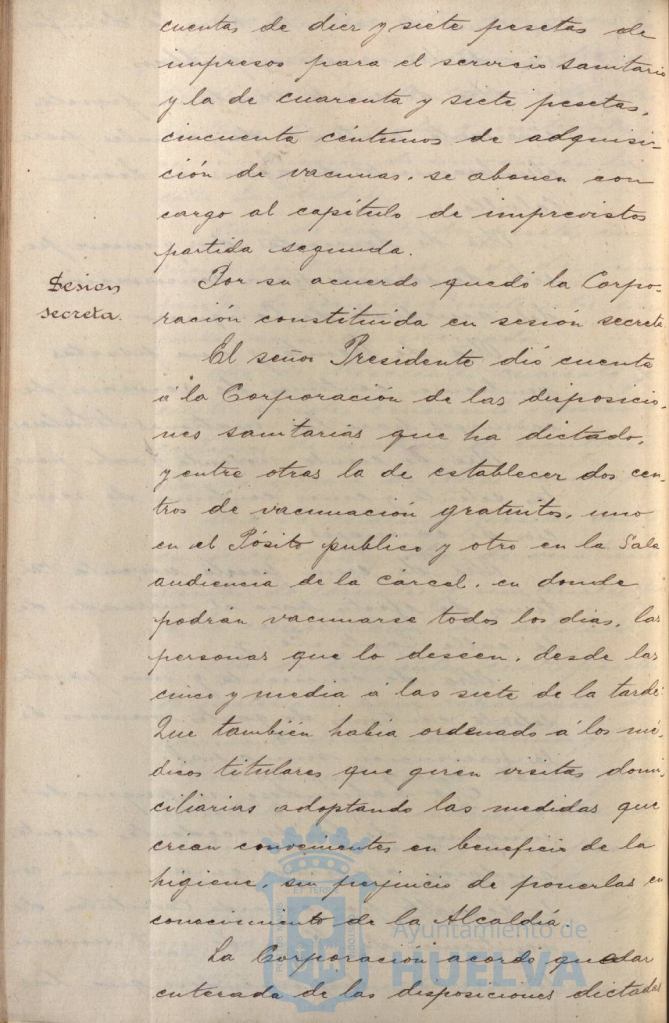 cuentas de diez y siete pesetas de
impresos para el servicio sanitario
y la de cuarenta y siete pesetas,
cincuenta céntimos de adquisi-
ción de vacunas, se abonen con
cargo al capítulo de imprevistos
partida segunda.
Sesion
secreta.
Por su acuerdo quedó la Corpo-
ración constituida en sesión secreta
El señor Presidente dió cuenta
á la Corporación de las disposicio-
nes sanitarias que ha dictado,
y entre otras la de establecer dos cen-
tros de vacunación gratuitos, uno
en el Pósito publico y otro en la Sala
audiencia de la Cárcel, en donde
podrán vacunarse todos los dias, las
personas que lo deséen, desde las
cinco y media á las siete de la tarde.
Que también habia ordenado á los mé-
dicos titulares que giren visitas domi-
ciliarias adoptando las medidas que
créan convenientes en beneficio de la
higiene, sin perjuicio de ponerlas en
conocimiento de la Alcaldía.
La Corporación acordó quedar
enterada de las disposiciones dictadas
Ayuntamiento de
HUELVA